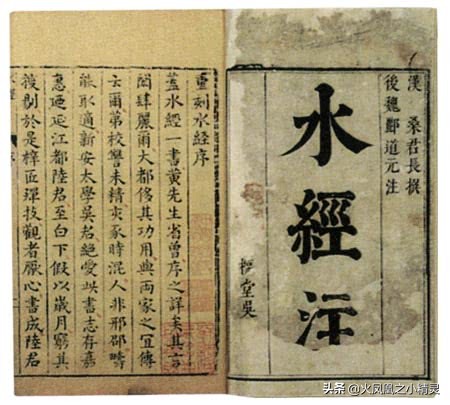 漢 桑君長撰
後魏酈道元注
水經注
堂吳
重刻水經序
蓋水經一書黃先生省曾序之詳矣其言
閎肆麗爾大都侈其功用與兩家之宜傳
云爾第校讐未精亥豕時混人非邢邵疇
能取適新安太學吳君絕愛此書志存嘉
惠迺延江都陸君至白下假以歲月窮其
剔於是梓匠殫技觀者厭心書成陸君
头条 @火凤凰之小精灵